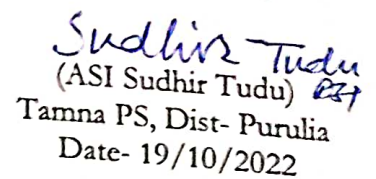 Sudhir Tudu
(ASI Sudhir Tudu) ASI
Tamna PS, Dist- Purulia
Date- 19/10/2022